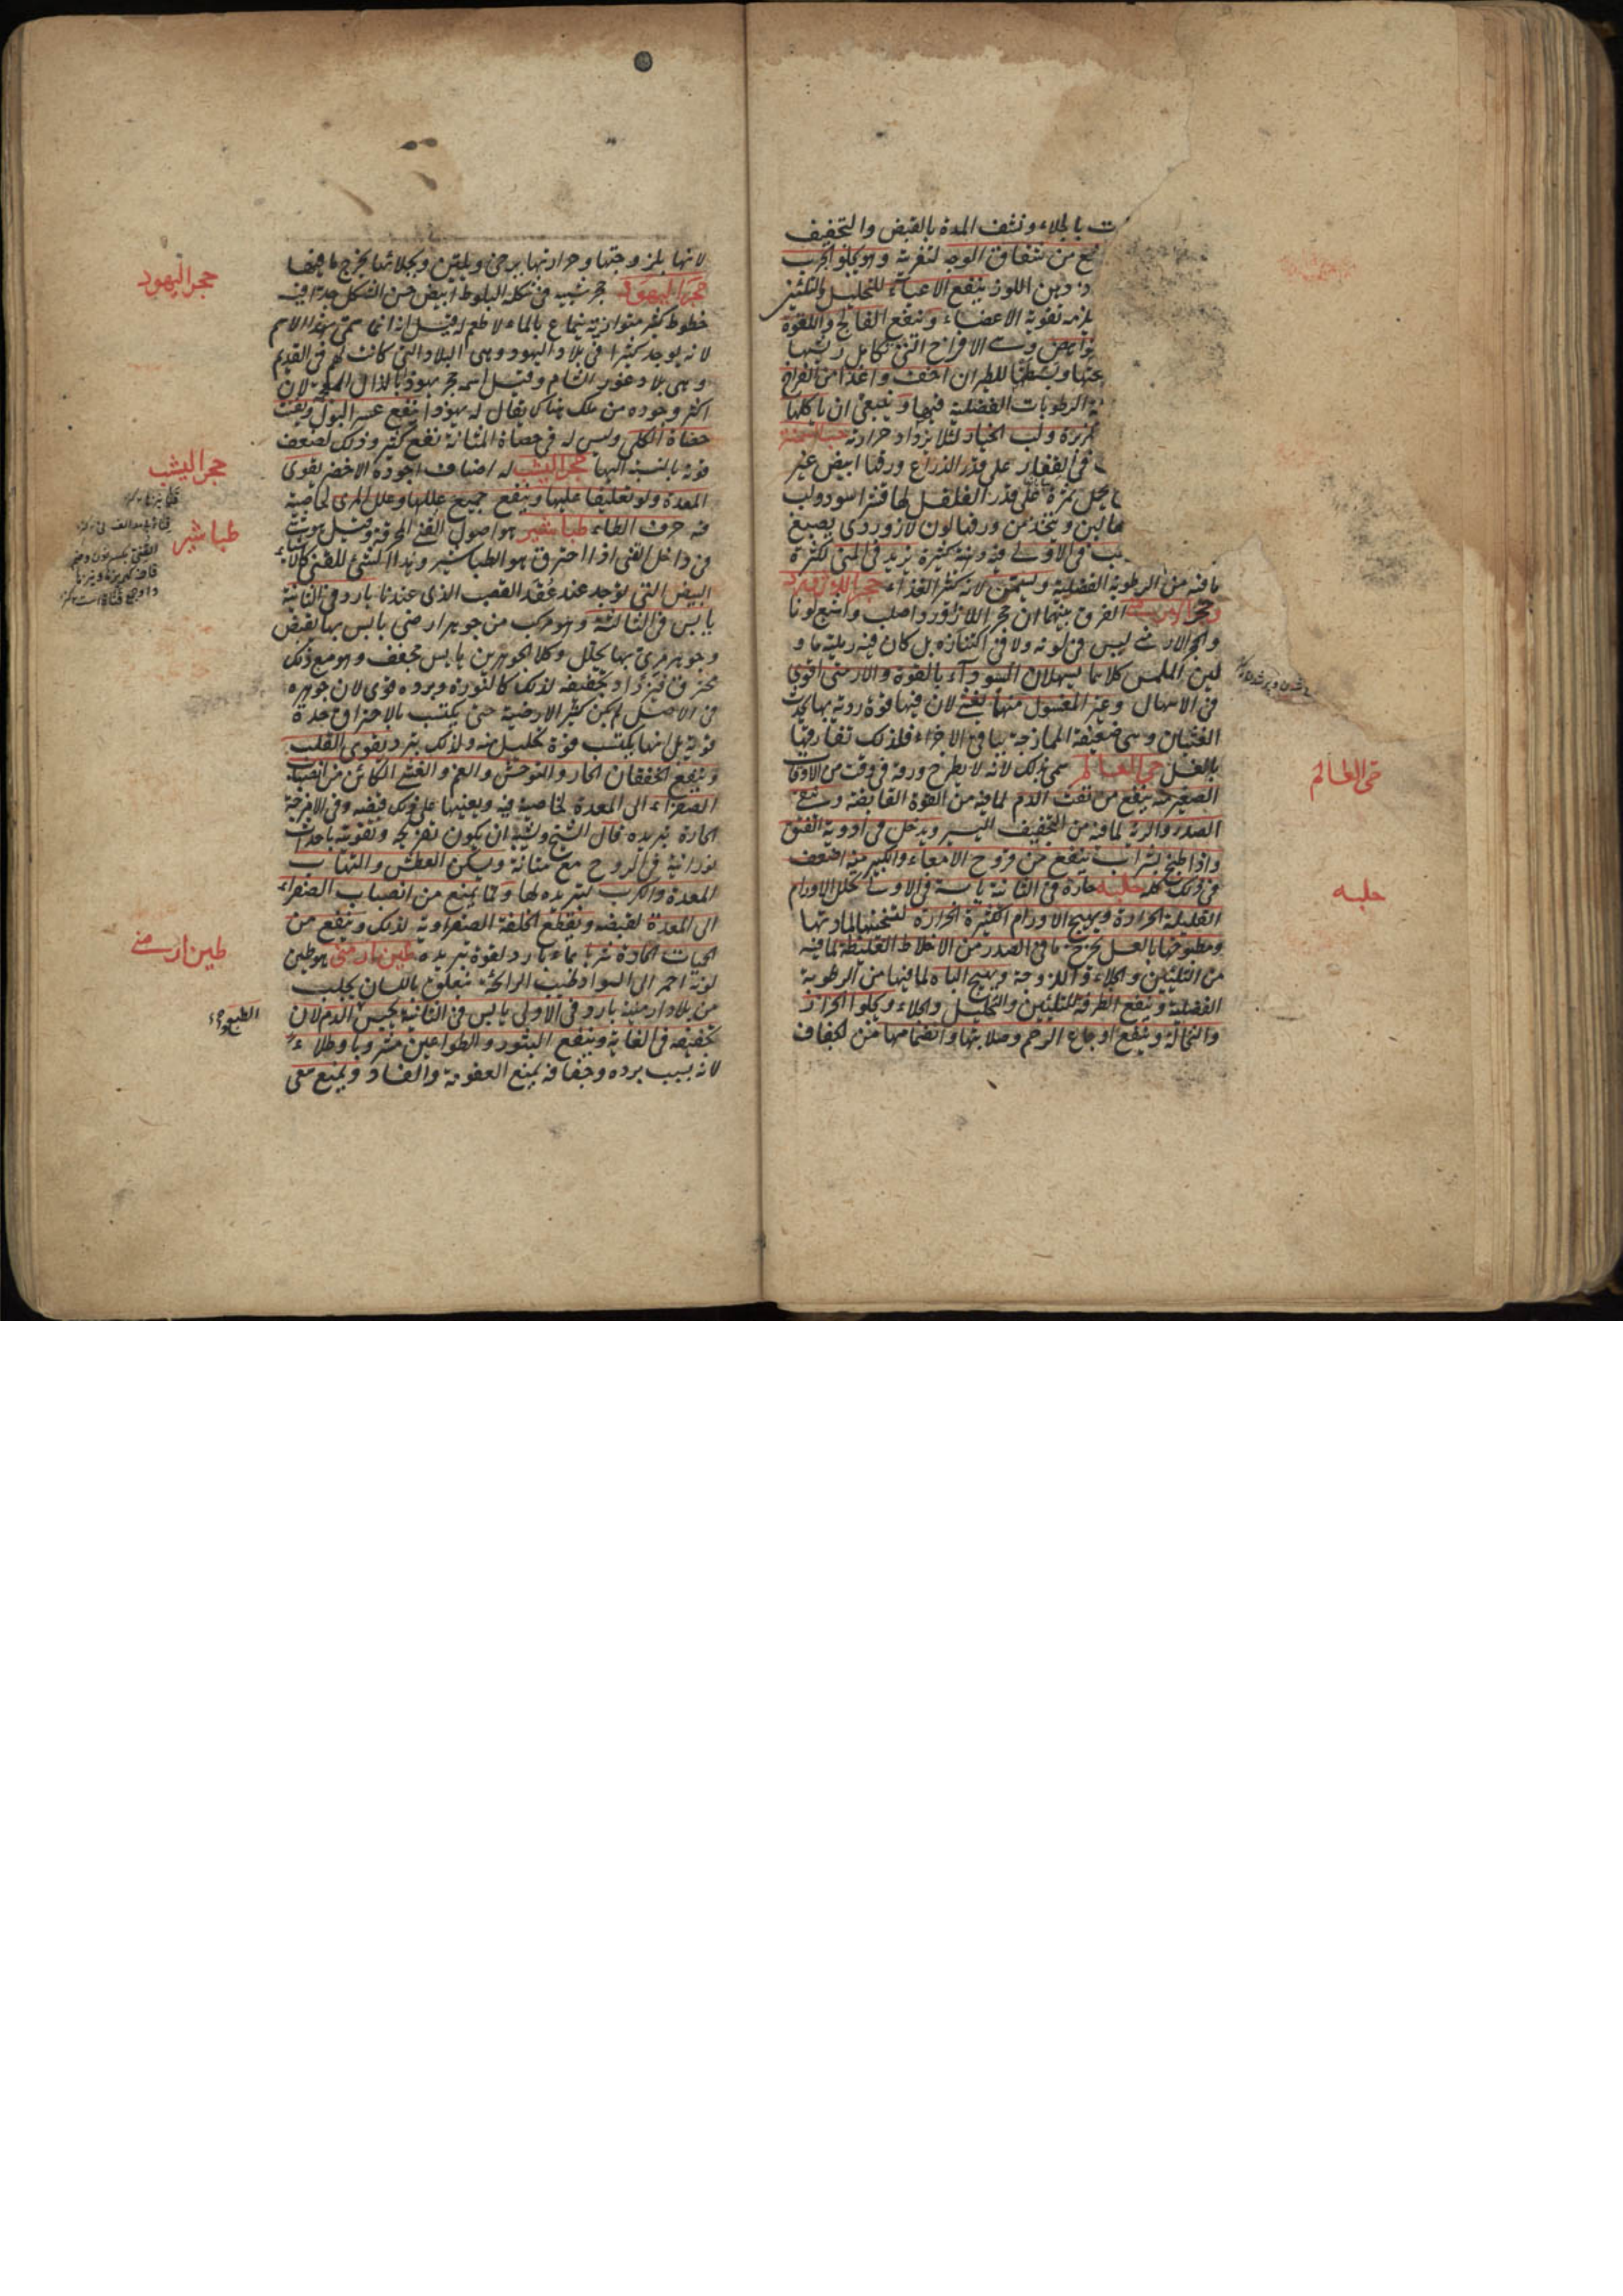 بالجلاء ونشف المدة بالقبض والتجفيف
من شقاق الوجه لتغريته وهو يجلو الجرب
دهن اللوز ينفع الاعياء للتحليل والتليين
تقوية الاعضاء وينفع الفالج واللقوة
الافراخ التى تكامل ريشها
للطيران اخف واغذا من الفراخ
الرطوبات الفضلية فيها وينبغى ان ياكلها
ولب الخيار لئلا يزداد حرارته
على قدر الذراع ورقها ابيض غير
على قدر الفلفل لها قشر اسود ولب
لون لازوردى يصبغ
يزيد فى المنى لكثرة
ما فيه من الرطوبة الفضلية ويسمن لانه كثير الغذاء حجر اللازورد
الفرق بينهما ان حجر اللازورد اصلب واشبع لونا
والحجر الارمنى ليس فى لونه ولا فى اكتنازه بل كان فيه رملية ما و
لين الملمس كلاهما يسهلان السوداء بالقوة والارمنى اقوى
فى الاسهال وغير المغسول منهما يغثى لان فيها قوة ردية بها يحدث
الغثيان وهى ضعيفة الممازجة بباقى الاجزاء فلذلك تفارقها
بالغسل حى العالم سمى بذلك لانه لا يطرح ورقه فى وقت من الاوقات
الصغير منه ينفع من نفث الدم لما فيه من القوة القابضة وينقى
الصدر والرية لما فيه من التجفيف اليسير ويدخل فى ادوية الفتق
واذا طبخ بشراب ينفع من قروح الامعاء والكبير منه اضعف
فى ذلك كله حلبه حارة فى الثانية يابسة فى الاولى تحلل الاورام
القليلة الحرارة ويهيج الاورام الكثيرة الحرارة لتسخينها لمادتها
ومطبوخها بالعسل يخرج ما فى الصدر من الاخلاط الغليظة لما فيه
من التليين والجلاء واللزوجة ويهيج الباه لما فيها من الرطوبة
الفضلية وينفع الطرفة للتليين والتحليل والجلاء ويجلو الحزاز
والنخالة وينفع اوجاع الرحم وصلابتها وانضمامها من الجفاف
حى العالم
حلبه
لانها بلزوجتها وحرارتها يرخى ويلين وبجلائها يخرج ما فيها
حجر اليهود حجر شبيه فى شكله البلوط ابيض حسن الشكل جدا فيه
خطوط كثير متوازية ينماع بالماء لا طعم له قيل انه انما سمى بهذا الاسم
لانه يوجد كثيرا فى بلاد اليهود وهى البلاد التى كانت لهم فى القديم
وهى بلاد غور الشام وقيل اسمه حجر يهوذ بالذال المعجمة لان
اكثر وجوده من ملك هناك يقال له يهوذا ينفع عسر البول ويفتت
حصاة الكلى وليس له فى حصاة المثانة نفع كثير وذلك لضعف
قوته بالنسبة اليها حجر اليشب له اصناف اجوده الاخضر يقوى
المعدة ولو تعليقا عليها وينفع جميع عللها وعلل المرى لخاصية
فيه حرف الطاء طباشير هو اصول القنى المحرقة وقيل هو شئ
فى داخل القنى اذا احترق هو الطباشير وهذا الشئ للقنى كالاشياء
البيض التى يوجد عند عقد القصب الذى عندنا بارد فى الثانية
يابس فى الثالثة وهو مركب من جوهر ارضى يابس بها يقبض
وجوهر مرى بها يحلل وكلا الجوهرين يابس مجفف وهو مع ذلك
محترق فيزداد تجفيفه لذلك كالنورة وبرده قوى لان جوهره
فى الاصل لم يكن كثير الارضية حتى يكتسب بالاحتراق حدة
قوية بل انها يكتسب قوة تحليل منه ولذلك يبرد يقوى القلب
وينفع الخفقان الحار والتوحش والغم والغشى الكائن من انصباب
الصفراء الى المعدة لخاصية فيه ويعينها على ذلك قبضه وفى الامزجة
الحارة تبريده قال الشيخ ويشبه ان يكون تفريحه وتقويته باحداث
نورانية فى الروح مع متانة ويسكن العطش والتهاب
المعدة والكرب لتبريده لها ولما يمنع من انصباب الصفراء
الى المعدة لقبضه ويقطع الخلفة الصفراوية لذلك وينفع من
الحميات الحادة شربا بماء بارد لقوة تبريده طين ارمنى هو طين
لونه احمر الى السواد طيب الرائحة يتعلق باللسان يجلب
من بلاد ارمينة بارد فى الاولى يابس فى الثانية يحبس الدم لان
تجفيفه فى الغاية وينفع البثور والطواعين مشروبا وطلاء
لانه بسبب برده وجفافه يمنع العفونة والفساد ويمنع سعى
حجر اليهود
حجر اليشب
طباشير
طين ارمنى